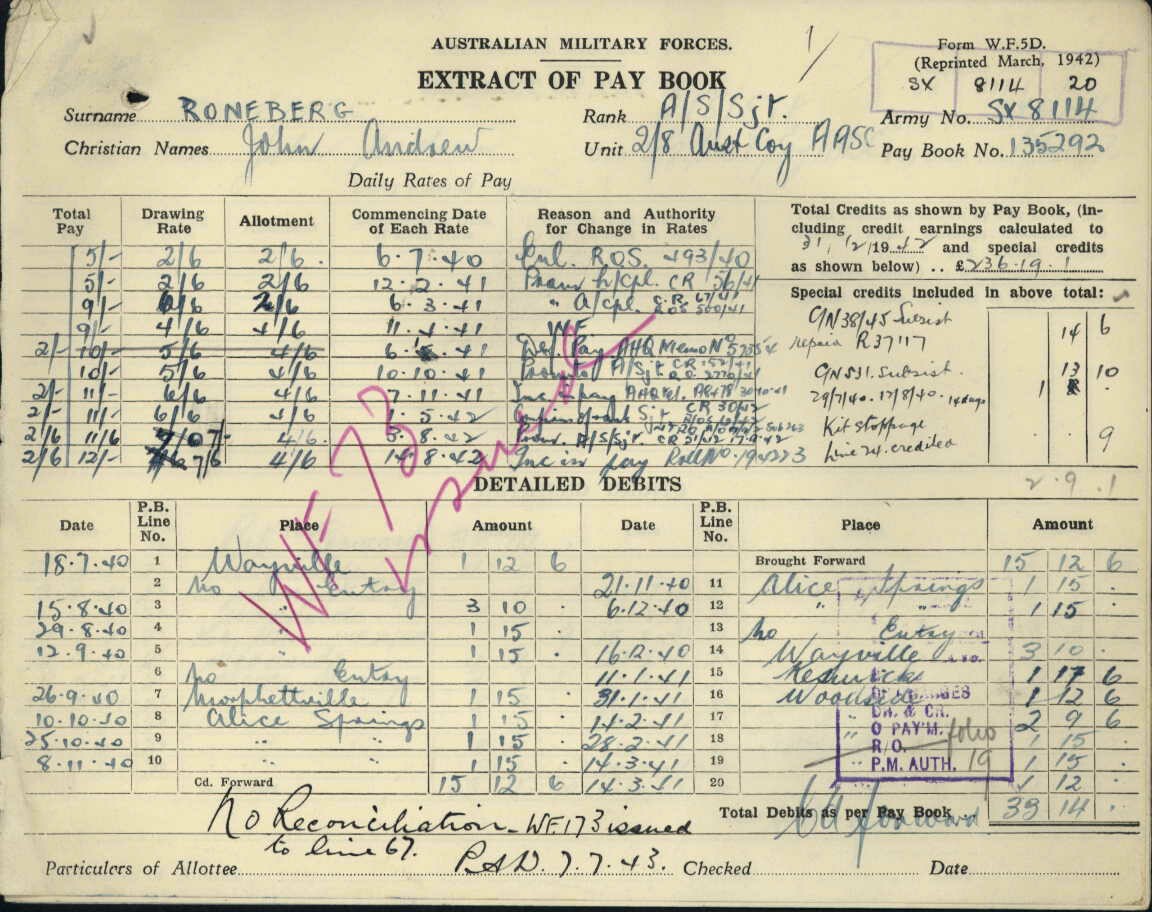 AUSTRALIAN MILITARY FORCES.
EXTRACT OF PAY BOOK
Form W.F.5D.
(Reprinted March, 1942)
SX 8114 20
Surname RONEBERG Rank A/S/Sjt. Army No. SX 8114
Christian Names John Andrew Unit 2/8 Aust Coy AASC Pay Book No. 135292
Daily Rates of Pay
Total Pay Drawing Rate Allotment Commencing Date of Each Rate Reason and Authority for Change in Rates
5/- 2/6 2/6 6.7.40 Enl. R.O.S. 493/40
5/- 2/6 2/6 12.2.41 Prom L/Cpl. CR 56/41
9/- 2/6 6.3.41 " A/Cpl. C.R. 67/41
9/- 4/6 4/6 11.4.41 WF
2/- 10/- 5/6 4/6 41 Def. Pay AHQ Memo No
10/- 5/6 4/6 10.10.41 Prom to A/Sjt CR 152/41
2/- 11/- 6/6 4/6 7.11.41 Inc. pay
2/- 11/- 6/6 4/6 1.5.42 Sjt CR 30/42
2/6 11/6 4/6 5.8.42 Prom. A/S/Sjt. CR 51/42 17.9.42
2/6 12/- 7/6 4/6 14.8.42 Inc in pay Roll No. 194223
Total Credits as shown by Pay Book, (including credit earnings calculated to
31/12/1942 and special credits
as shown below) .. £236.19.1
Special credits included in above total:
C/N 38/45 Subsist
repaid R37117 14 6
C/N 531. Subsist.
29/7/40. 12/8/40. 14 days 1 13 10
Kit stoppage
Line 24. credited 9
2.9.1
DETAILED DEBITS
Date P.B. Line No. Place Amount Date P.B. Line No. Place Amount
18.7.40 1 Wayville 1 12 6 Brought Forward 15 12 6
2 No Entry 21.11.40 11 Alice Springs 1 15 .
15.8.40 3 " 3 10 . 6.12.40 12 " " 1 15 .
29.8.40 4 " 1 15 . 13 No Entry
12.9.40 5 1 15 . 16.12.40 14 Wayville 3 10 .
6 No Entry 11.1.41 15 Keswick 1 17 6
26.9.40 7 Morphettville 1 15 . 31.1.41 16 Woodside 1 12 6
10.10.40 8 Alice Springs 1 15 . 14.2.41 17 " 2 9 6
25.10.40 9 " " 1 15 . 28.2.41 18 " 1 15 .
8.11.40 10 " " 1 15 . 14.3.41 19 1 15 .
Cd. Forward 15 12 6 14.3.41 20 " 1 12 .
Total Debits as per Pay Book Cd forward 33 14 .
DR. & CR.
O PAY'M.
R/O.
P.M. AUTH.
folio 19
WF 73
No Reconciliation - WF.173 issued
to line 67.
Particulars of Allottee P.A.D. 7.7.43. Checked Date